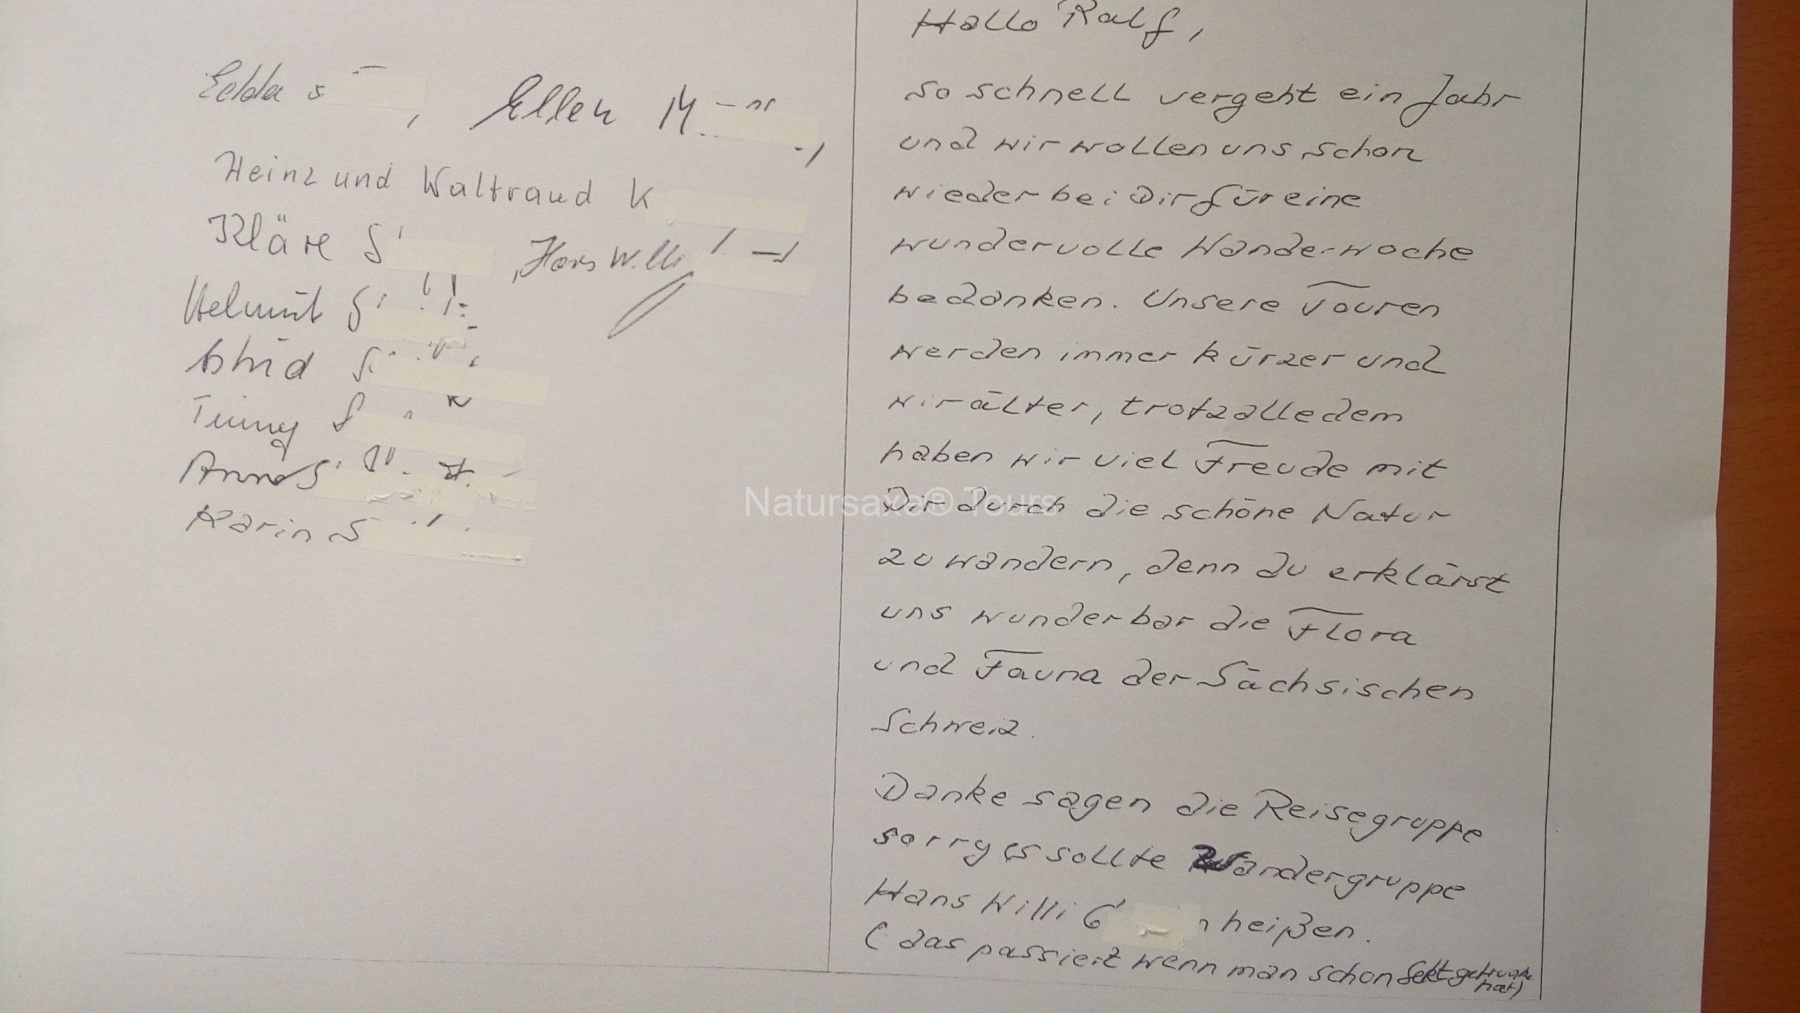 Edda S
Ellen M
Heinz und Waltraud K
Kläre S
, Hans Willi
Helmut S
Astrid S
Anne S
Karin S
Hallo Ralf,
so schnell vergeht ein Jahr
und wir wollen uns schon
wieder bei Dir für eine
wundervolle Wanderwoche
bedanken. Unsere Touren
werden immer kürzer und
wir älter, trotzalledem
haben wir viel Freude mit
Dir durch die schöne Natur
zu wandern, denn du erklärst
uns wunderbar die Flora
und Fauna der Sächsischen
Schweiz.
Danke sagen die Reisegruppe
sorry es sollte Wandergruppe
Hans Willi G n heißen.
( das passiert wenn man schon Sekt getrunken
hat)
Natursaxa® Tours